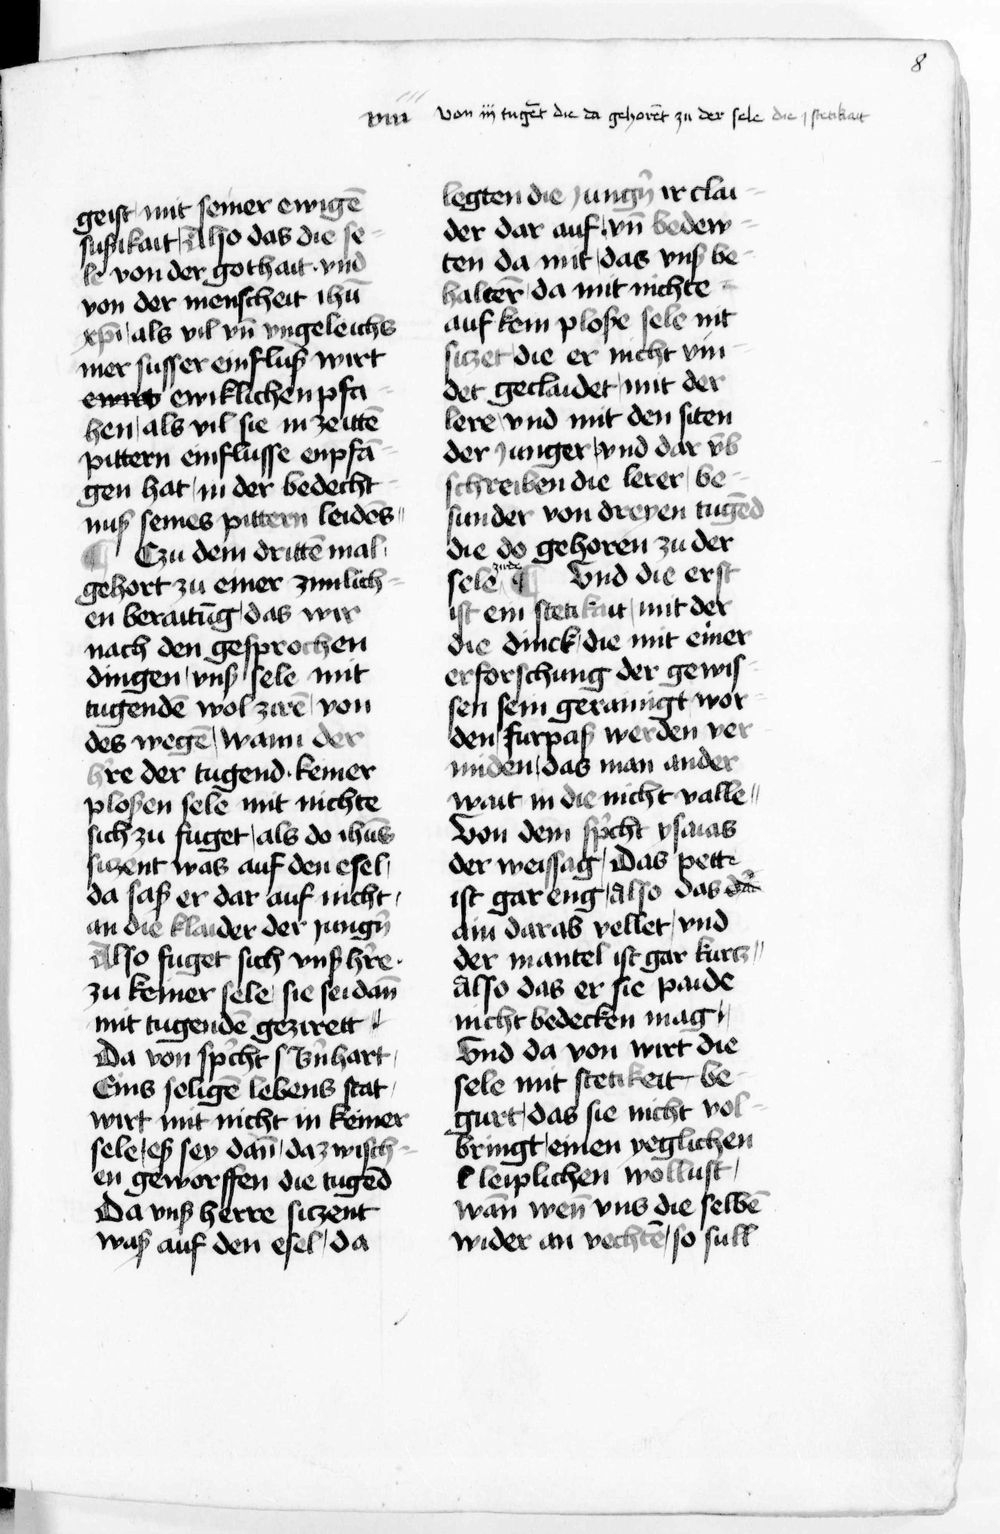 8
viiii von iij tugēt die da gehorēt zu der sele die j stetikait
geist / mit seiner ewigē
susikait / Also das die se-
le von der gothait · vnd
von der menscheit ihū
xp̄i / als vil vn̄ vngeleichs
mer susser einfluß wirt
ewirt ewiklichen pfa-
hen / als vil sie in zeittē
pittern einflusse enpfā-
gen hat / in der bedecht-
nuß seines pittern leidēs //
¶ Czu dem drittē mal /
gehort zu einer zimlich-
en beraitūg / das wir
nach den gesprochen
dingen / vnß sele mit
tugendē wol zirē / von
des wegē / wann der
h're der tugend · keiner
ploßen sele mit nichte
sich zu fuget / als do ihūs
sizent was auf den esel /
da saß er dar auf nicht /
an die klaider der jungn̄
Also fuget sich vnß h're ·
zu keiner sele / sie sei dan̄
mit tugendē gezirett //
Da von sp'cht s b'nhart /
Eins seligē lebens stat /
wirt mit nicht in keiner
sele / eß sey dan̄ / dazwisch-
en geworffen die tugēd
Da vnß herre sizent
waß auf den esel / da
legten die jungn̄ ir clai-
der dar auf / vn̄ bedew-
ten da mit / das vnß be-
haltēr / da mit nichte
auf kein ploße sele nit
sizet / die er nicht vin-
det geclaidet / mit der
lere / vnd mit den siten
der junger / vnd dar v̄b
schreiben die lerer / be-
sunder von dreyen tugēd
die do gehoren zu der
sele ¶ Vnd die erst
ist ein stetikait / mit der
die dinck / die mit einer
erforschung der gewis-
sen sein gerainigt wor-
den / furpaß werden ver-
miden / das man ander
wait in die nicht valle //
Von dem sp'cht ysaias
der weissag / Das pett
ist gar eng / Also das
ain darab vellet / vnd
der mantel ist gar kurtz //
Also das er sie paide
nicht bedecken mag //
Vnd da von wirt die
sele mit stetikeit be-
gurt / das sie nicht vol-
bringt / einen yeglichen
leiplichen wollust /
wan̄ wen̄ vns die selbē
wider an vechtē / so sull